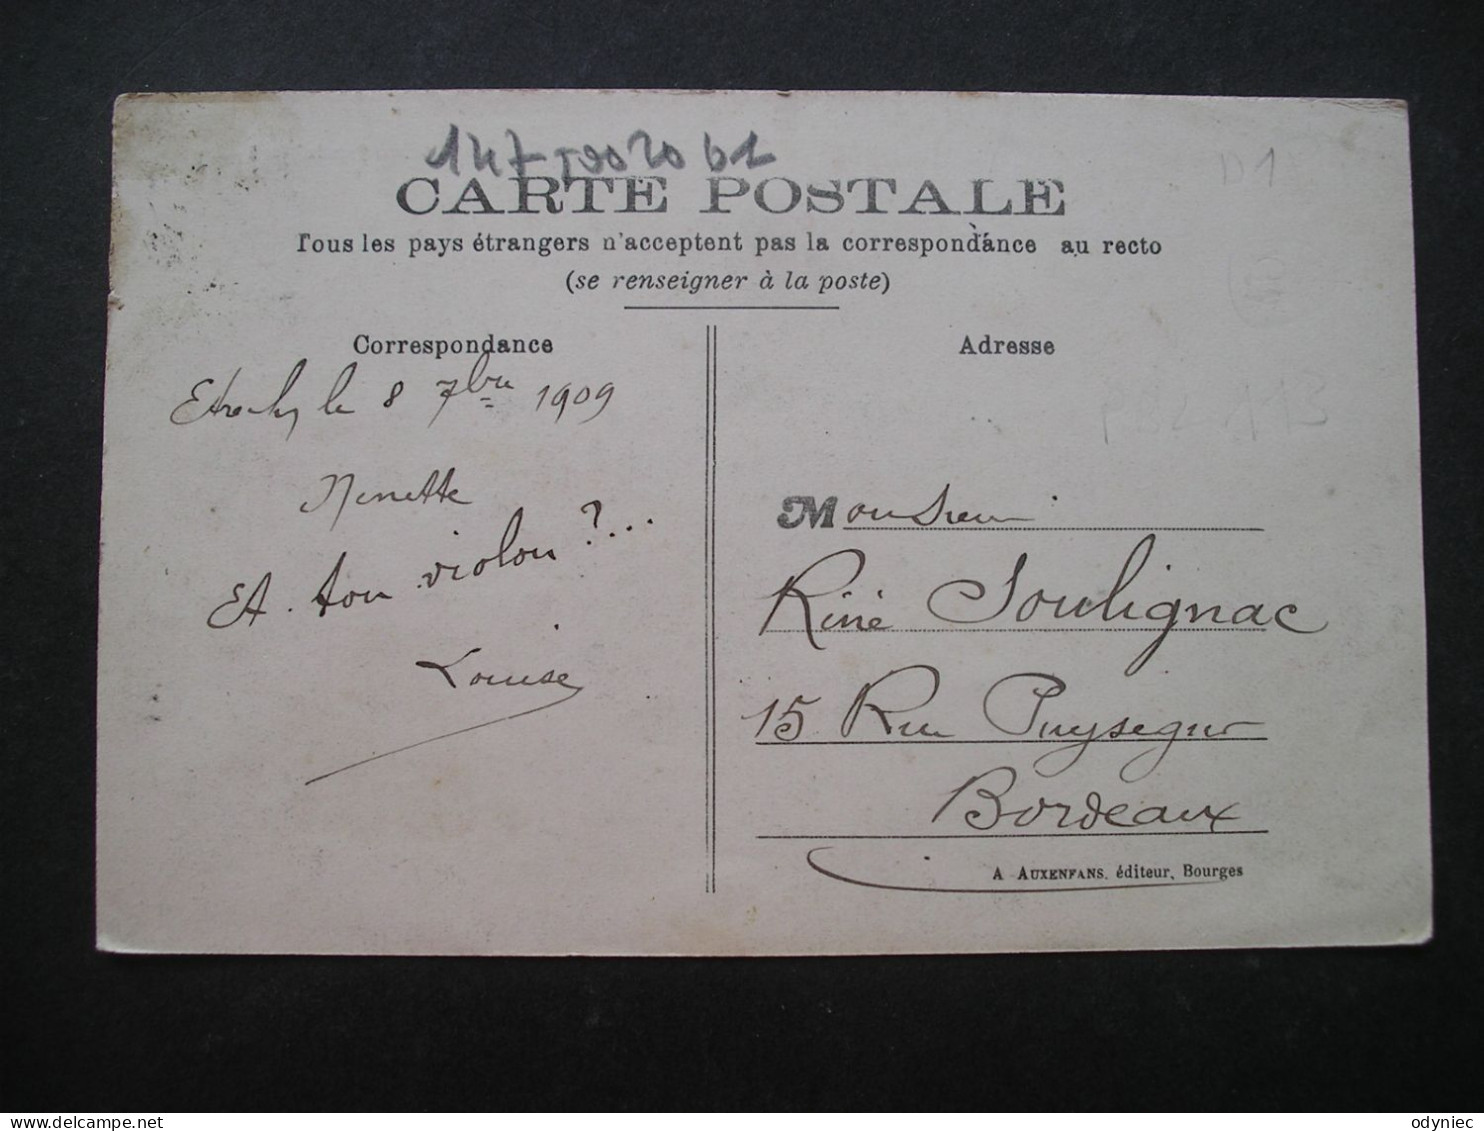 D1
CARTE POSTALE
Tous les pays étrangers n'acceptent pas la correspondance au recto
(se renseigner à la poste)
Correspondance
le 8 7bre 1909
Nenette
Et ton violon ?...
Louise
Adresse
Monsieur
Réné Soulignac
15 Rue Puysegur
Bordeaux
A. AUXENFANS, éditeur, Bourges
odyniec